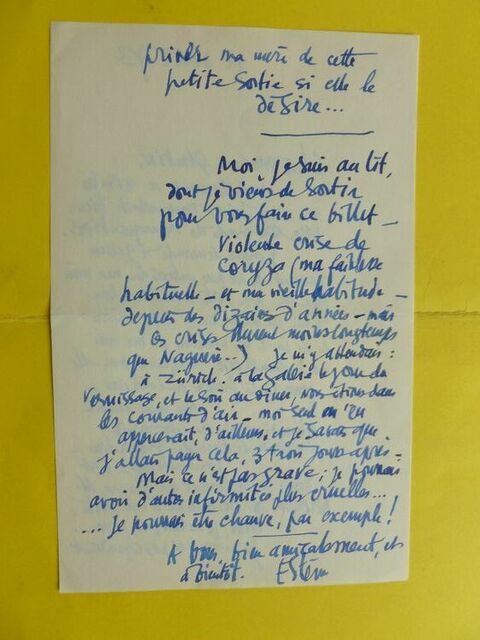 priver ma mère de cette
petite sortie si elle le
désire...
Moi, je suis au lit,
dont je viens de sortir
pour vous faire ce billet _
Violente crise de
coryza (ma faiblesse
habituelle _ et ma vieille habitude _
depuis des dizaines d'années _ mais
les crises durent moins longtemps
que Naguère...) je m'y attendais :
à Zürich. à la Galerie le jour du
Vernissage, et le soir au dîner, nous étions dans
les courants d'air _ moi seul m'en
apercevait, d'ailleurs, et je savais que
j'allais payer cela, 3 trois jours après _
Mais ce n'est pas grave ; je pourrais
avoir d'autres infirmités plus cruelles...
... Je pourrais être chauve, par exemple !
A vous, bien amicalement, et
à bientôt.